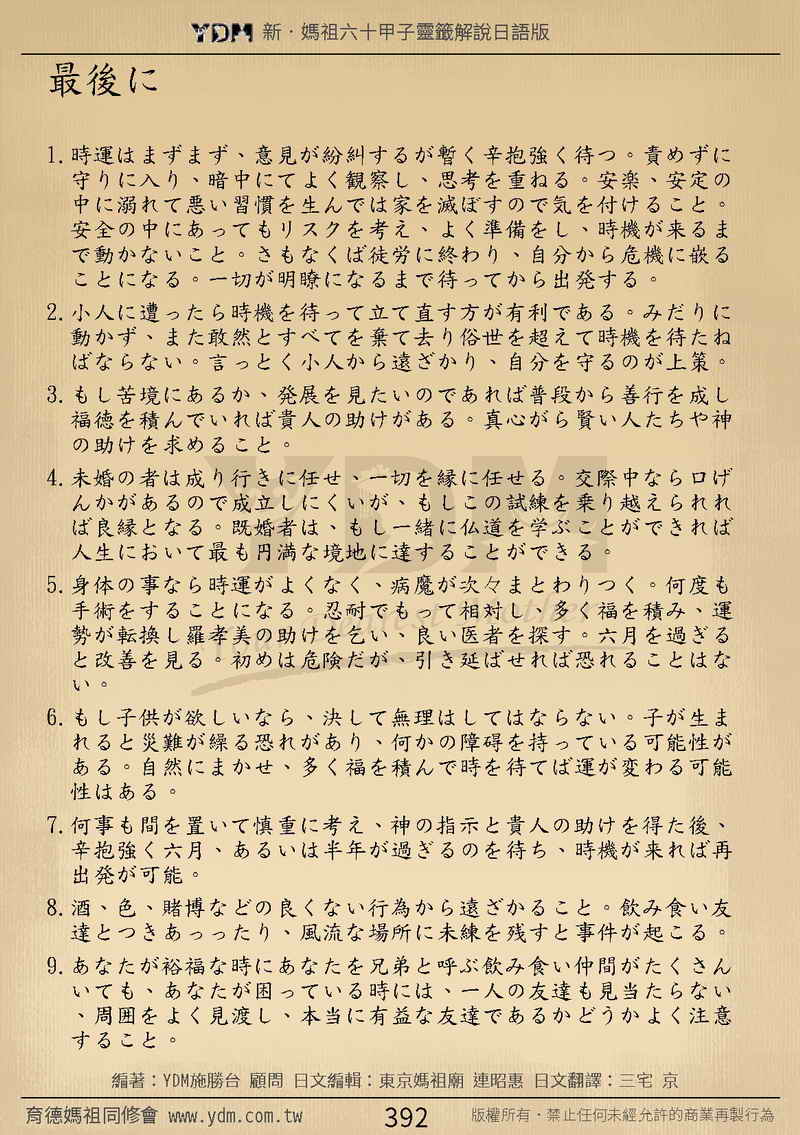 YDM 新・媽祖六十甲子靈籤解說日語版
最後に
1. 時運はまずまず、意見が紛糾するが暫く辛抱強く待つ。責めずに
守りに入り、暗中にてよく観察し、思考を重ねる。安楽、安定の
中に溺れて悪い習慣を生んでは家を滅ぼすので気を付けること。
安全の中にあってもリスクを考え、よく準備をし、時機が来るま
で動かないこと。さもなくば徒労に終わり、自分から危機に嵌る
ことになる。一切が明瞭になるまで待ってから出発する。
2. 小人に遭ったら時機を待って立て直す方が有利である。みだりに
動かず、また敢然とすべてを棄て去り俗世を超えて時機を待たね
ばならない。言っとく小人から遠ざかり、自分を守るのが上策。
3. もし苦境にあるか、発展を見たいのであれば普段から善行を成し
福徳を積んでいれば貴人の助けがある。真心がら賢い人たちや神
の助けを求めること。
4. 未婚の者は成り行きに任せ、一切を縁に任せる。交際中なら口げ
んかがあるので成立しにくいが、もしこの試練を乗り越えられれ
ば良縁となる。既婚者は、もし一緒に仏道を学ぶことができれば
人生において最も円満な境地に達することができる。
5. 身体の事なら時運がよくなく、病魔が次々まとわりつく。何度も
手術をすることになる。忍耐でもって相対し、多く福を積み、運
勢が転換し羅孝美の助けを乞い、良い医者を探す。六月を過ぎる
と改善を見る。初めは危険だが、引き延ばせれば恐れることはな
い。
6. もし子供が欲しいなら、決して無理はしてはならない。子が生ま
れると災難が繰る恐れがあり、何かの障碍を持っている可能性が
ある。自然にまかせ、多く福を積んで時を待てば運が変わる可能
性はある。
7. 何事も間を置いて慎重に考え、神の指示と貴人の助けを得た後、
辛抱強く六月、あるいは半年が過ぎるのを待ち、時機が来れば再
出発が可能。
8. 酒、色、賭博などの良くない行為から遠ざかること。飲み食い友
達とつきあっったり、風流な場所に未練を残すと事件が起こる。
9. あなたが裕福な時にあなたを兄弟と呼ぶ飲み食い仲間がたくさん
いても、あなたが困っている時には、一人の友達も見当たらない
、周囲をよく見渡し、本当に有益な友達であるかどうかよく注意
すること。
編著：YDM施勝台 顧問 日文編輯：東京媽祖廟 連昭惠 日文翻譯：三宅 京
育德媽祖同修會 www.ydm.com.tw 392 版權所有・禁止任何未經允許的商業再製行為